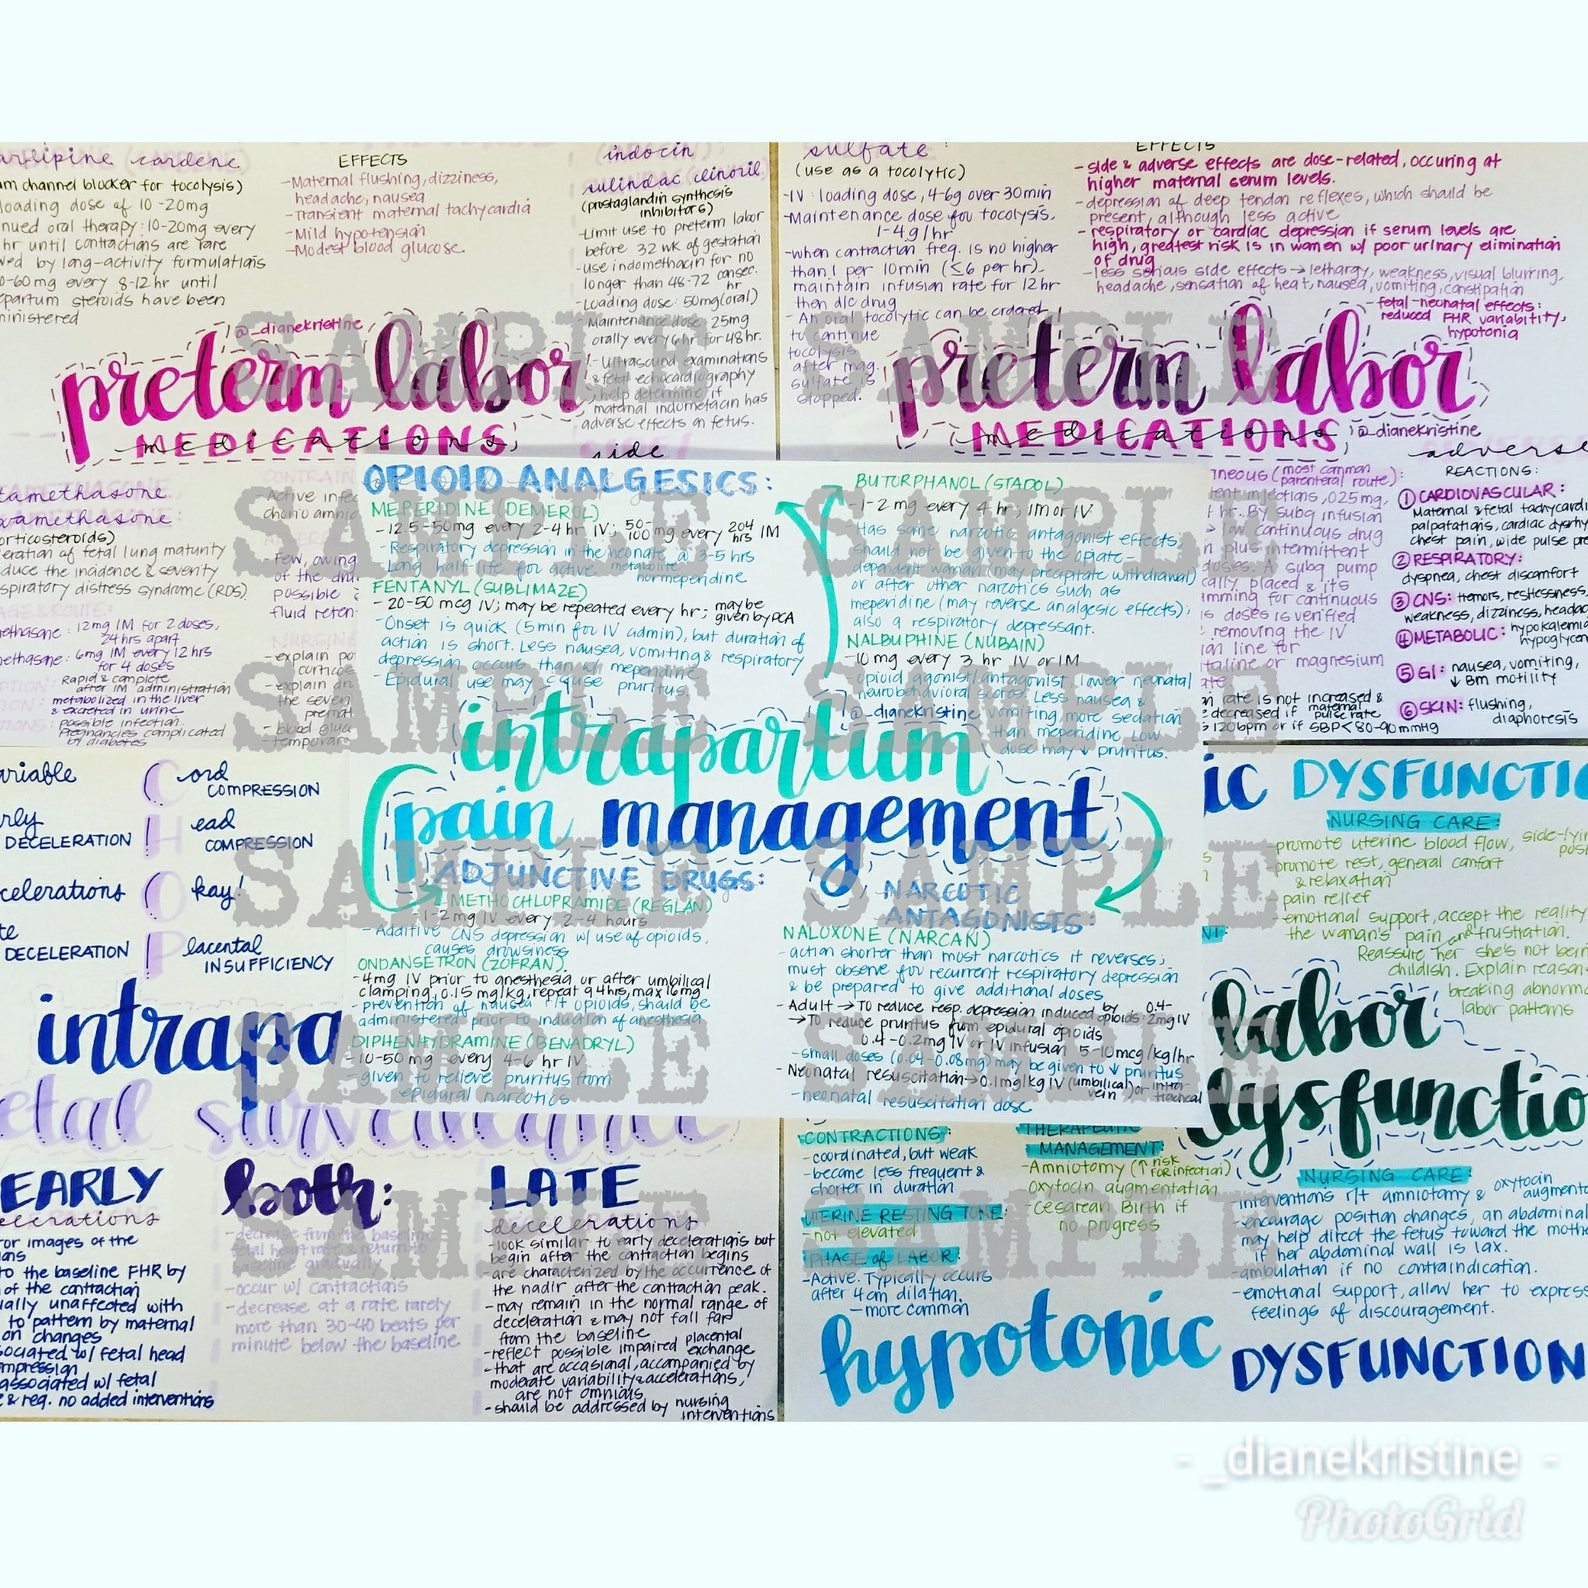 cardene
EFFECTS
channel blocker for tocolysis)
loading dose of 10-20mg
oral therapy: 10-20mg every
hr until contractions are rare
by long-activity formulations
every 8-12hr until
steroids have been
- Maternal flushing, dizziness,
headache, nausea
- Transient maternal tachycardia
- Mild hypotension
- Modest blood glucose
indocin
sulindac clinoril
(prostaglandin synthesis
inhibitors)
- Limit use to preterm labor
before 32 wk of gestation
- use indomethacin for no
longer than 48-72 consec.
hr
- Loading dose: 50mg (oral)
- Maintenance dose: 25mg
orally every 6hr for 48hr.
- Ultrasound examinations
& fetal echocardiography
help determine if
maternal indometacin has
adverse effects on fetus.
@_dianekristine
preterm labor
MEDICATIONS
medications
side
sulfate
(use as a tocolytic)
- IV: loading dose, 4-6g over 30min
- Maintenance dose for tocolysis,
1-4g/hr
- when contraction freq. is no higher
than 1 per 10min (≤6 per hr)
maintain infusion rate for 12hr
then d/c drug
- An oral tocolytic can be ordered
to continue
tocolysis
after mag.
sulfate is
stopped.
EFFECTS
- side & adverse effects are dose-related, occuring at
higher maternal serum levels.
- depression of deep tendon reflexes, which should be
present, although less active
- respiratory or cardiac depression if serum levels are
high, greatest risk is in women w/ poor urinary elimination
of drug
- less serious side effects → lethargy, weakness, visual blurring,
headache, sensation of heat, nausea, vomiting, constipation
- fetal-neonatal effects:
reduced FHR variability,
hypotonia
preterm labor
MEDICATIONS
medications
@_dianekristine
(corticosteroids)
of fetal lung maturity
the incidence & severity
respiratory distress syndrome (RDS)
12mg IM for 2 doses,
24 hrs apart
6mg IM every 12 hrs
for 4 doses
Rapid & complete
after IM administration
metabolized in the liver
& excreted in urine
possible infection.
Pregnancies complicated
by diabetes
- Active
- Few, owing
of the
possible
fluid
- explain
- explain
the
- blood
OPIOID ANALGESICS:
MEPERIDINE (DEMEROL)
- 12.5-50mg every 2-4 hr IV; 50-100 mg every 204 hrs IM
- Respiratory depression in the neonate at 3-5 hrs
- Long half life for active metabolite normeperidine
FENTANYL (SUBLIMAZE)
- 20-50 mcg IV; may be repeated every hr; may be given by PCA
- Onset is quick (5min for IV admin), but duration of
action is short. Less nausea, vomiting & respiratory
depression occurs than w/ meperidine
- Epidural use may cause pruritus
BUTORPHANOL (STADOL)
- 1-2 mg every 4 hr; IM or IV
- Has some narcotic antagonist effects,
should not be given to the opiate-
dependent woman (may precipitate withdrawal)
or after other narcotics such as
meperidine (may reverse analgesic effects);
also a respiratory depressant.
NALBUPHINE (NUBAIN)
- 10 mg every 3 hr IV or IM
- opioid agonist/antagonist, lower neonatal
neurobehavioral scores. Less nausea &
@_dianekristine vomiting, more sedation
than meperidine. Low
dose may ↓ pruritus.
intrapartum
pain management
ADJUNCTIVE DRUGS:
METHOCHLOPRAMIDE (REGLAN)
- 1-2mg IV every 2-4 hours
- Additive CNS depression w/ use of opioids,
causes drowsiness
ONDANSETRON (ZOFRAN)
- 4mg IV prior to anesthesia or after umbilical
clamping; 0.15 mg/kg, repeat q4hrs, max 16mg
- prevention of nausea r/t opioids, should be
administered prior to induction of anesthesia
DIPHENHYDRAMINE (BENADRYL)
- 10-50 mg every 4-6 hr IV
- given to relieve pruritus from
epidural narcotics
NARCOTIC
ANTAGONISTS:
NALOXONE (NARCAN)
- action shorter than most narcotics it reverses;
must observe for recurrent respiratory depression
& be prepared to give additional doses
- Adult → To reduce resp. depression induced by opioids: 0.4-2mg IV
→ To reduce pruritus from epidural opioids
0.4-0.2mg IV or IV infusion 5-10mcg/kg/hr
- small doses (0.04-0.08mg) may be given to ↓ pruritus
- Neonatal resuscitation → 0.1mg/kg IV (umbilical vein) or intra-tracheal
- neonatal resuscitation dose
adverse
REACTIONS:
(most common
parenteral route)
injections, 0.25mg
hr. By subq infusion
continuous drug
plus intermittent
doses. A subq pump
placed & it's
for continuous
doses is verified
removing the IV
line for
or magnesium
rate is not increased &
decreased if maternal pulse rate
120bpm or if SBP < 80-90mmHg
① CARDIOVASCULAR:
Maternal & fetal
palpatations, cardiac
chest pain, wide pulse
② RESPIRATORY:
dyspnea, chest discomfort
③ CNS: tremors, restlessness,
weakness, dizziness,
④ METABOLIC: hypokalemia
⑤ GI: nausea, vomiting,
↓ BM motility
⑥ SKIN: flushing,
diaphoresis
Cord
COMPRESSION
DECELERATION
Head
COMPRESSION
Okay!
DECELERATION
Placental
INSUFFICIENCY
intrapa
surveillance
EARLY
images of the
to the baseline FHR by
of the contraction
unaffected with
to pattern by maternal
changes
w/ fetal head
associated w/ fetal
& req. no added interventions
both:
- decrease from the baseline
fetal heart rate & return to
baseline gradually
- occur w/ contractions
- decrease at a rate rarely
more than 30-40 beats per
minute below the baseline
LATE
decelerations
- look similar to early decelerations but
begin after the contraction begins
- are characterized by the occurrence of
the nadir after the contraction peak.
- may remain in the normal range of
deceleration & may not fall far
from the baseline
- reflect possible impaired placental exchange
- that are occasional, accompanied by
moderate variability & accelerations,
are not ominous
- should be addressed by nursing
interventions
ic DYSFUNCTIO
NURSING CARE:
- promote uterine blood flow, side-lying
- promote rest, general comfort
& relaxation
- pain relief
- emotional support, accept the reality
the woman's pain and frustration.
Reassure her she's not being
childish. Explain reason
breaking abnormal
labor patterns
labor
dysfunctio
CONTRACTIONS:
- coordinated, but weak
- become less frequent &
shorter in duration
UTERINE RESTING TONE:
- not elevated
PHASE of LABOR:
- Active. Typically occurs
after 4cm dilation.
- more common
THERAPEUTIC
MANAGEMENT:
- Amniotomy (↑ risk for infection)
- Oxytocin augmentation
- Cesarean Birth if
no progress
NURSING CARE:
- interventions r/t amniotomy & oxytocin
- encourage position changes, an abdominal
may help direct the fetus toward the
if her abdominal wall is lax.
- ambulation if no contraindication.
- emotional support, allow her to express
feelings of discouragement.
hypotonic
DYSFUNCTION
SAMPLE SAMPLE
SAMPLE SAMPLE
SAMPLE SAMPLE
SAMPLE SAMPLE
SAMPLE SAMPLE
SAMPLE SAMPLE
- _dianekristine -
PhotoGrid